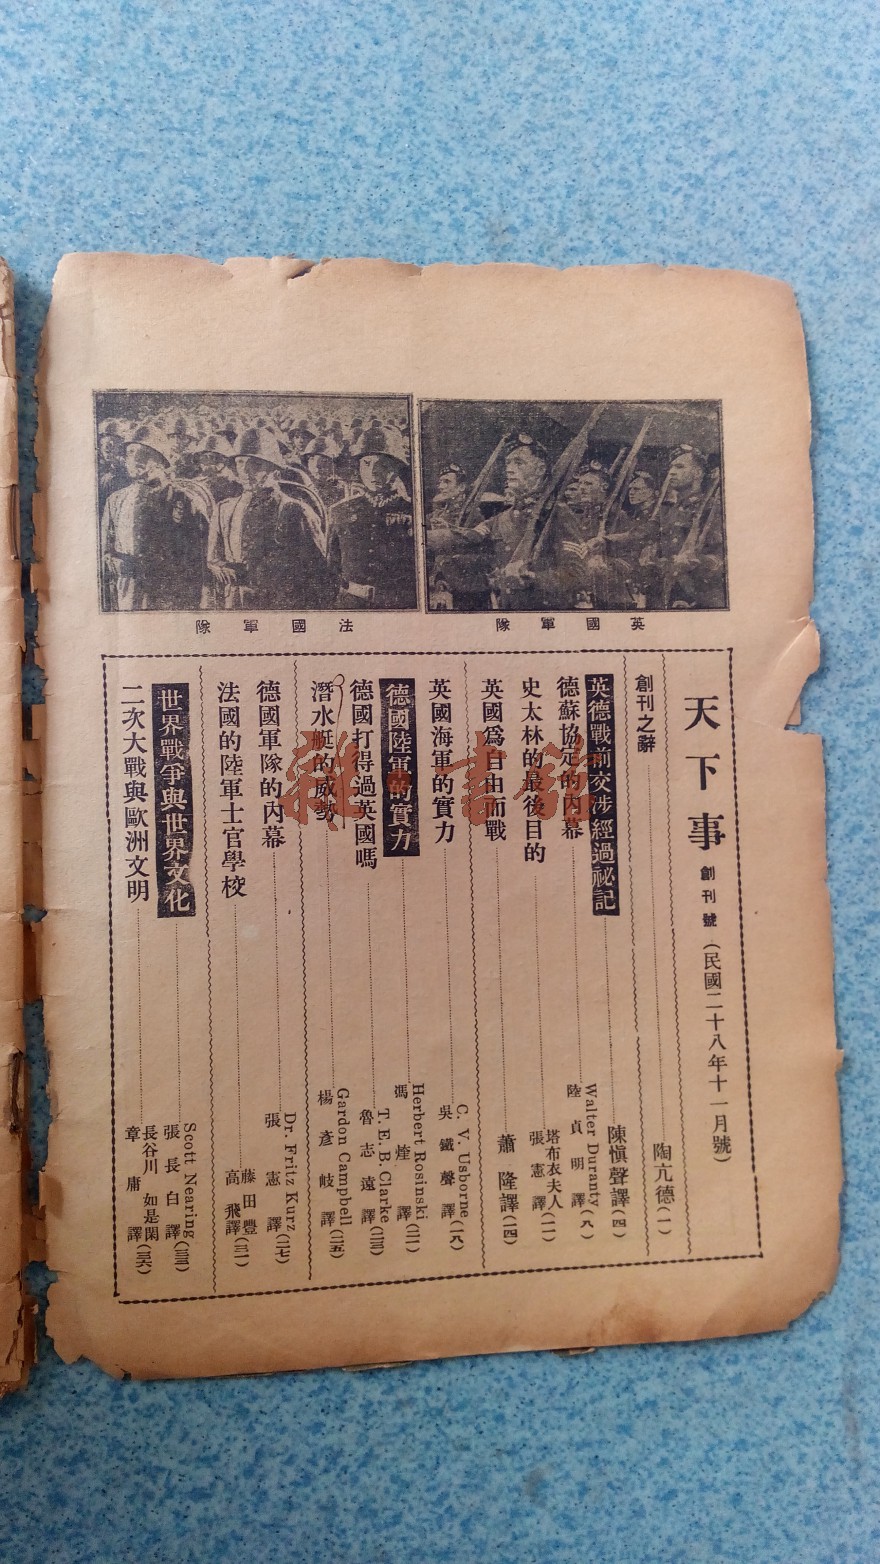 英國軍隊
法國軍隊
天下事 創刊號 (民國二十八年十一月號)
創刊之辭 陶亢德(一)
英德戰前交涉經過祕記 陳愼聲譯(四)
德蘇協定的內幕 Walter Duranty 陸貞明譯(八)
史太林的最後目的 塔布衣夫人 張憲譯(一一)
英國爲自由而戰 蕭隆譯(一四)
英國海軍的實力 C. V. Usborne 吳鐵聲譯(一八)
德國陸軍的實力 Herbert Rosinski 馮煃譯(二一)
德國打得過英國嗎 T. E. B. Clarke 魯志遠譯
潛水艇的威勢 Gardon Campbell 楊彥岐譯(二五)
德國軍隊的內幕 Dr. Fritz Kurz 張憲譯(二七)
法國的陸軍士官學校 藤田豐 高飛譯(三一)
世界戰爭與世界文化 Scott Nearing 張長白譯
二次大戰與歐洲文明 長谷川如是閑 章庸譯(三六)
雜·書館